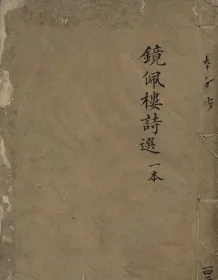 鏡佩樓詩選一本